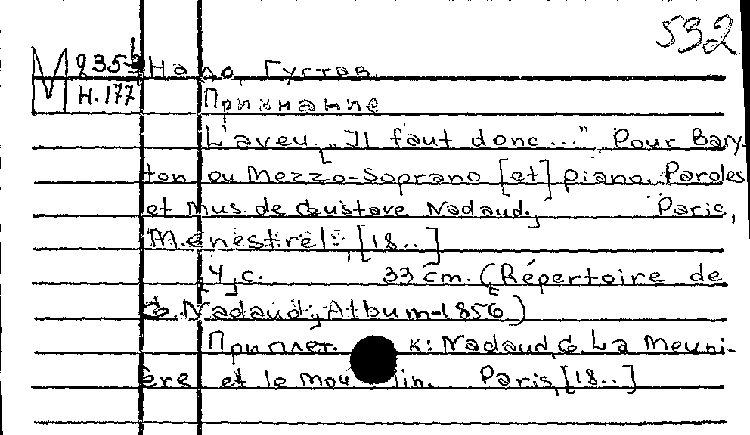 532
М 235b Надо, Густав
Н.177 Признание
L'aveu „Il faut donc..." Pour Bary-
ton ou Mezzo-Soprano [et] piano. Paroles
et mus. de Gustave Nadaud. Paris,
Ménestrel, [18..]
[4] с. 33 см. (Répertoire de
G. Nadaud; Album-1856)
Приплет. к: Nadaud, G. La Meuni-
ère et le moulin. Paris, [18..]